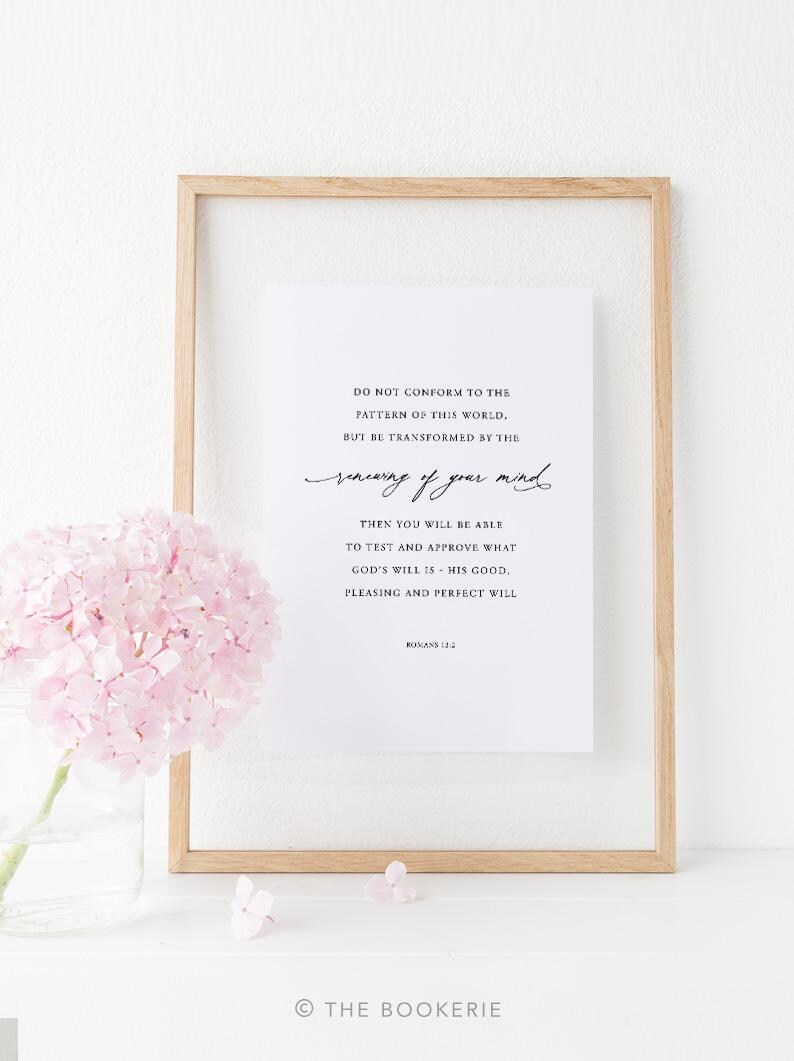 DO NOT CONFORM TO THE
PATTERN OF THIS WORLD,
BUT BE TRANSFORMED BY THE
renewing of your mind
THEN YOU WILL BE ABLE
TO TEST AND APPROVE WHAT
GOD'S WILL IS - HIS GOOD,
PLEASING AND PERFECT WILL
ROMANS 12:2
© THE BOOKERIE